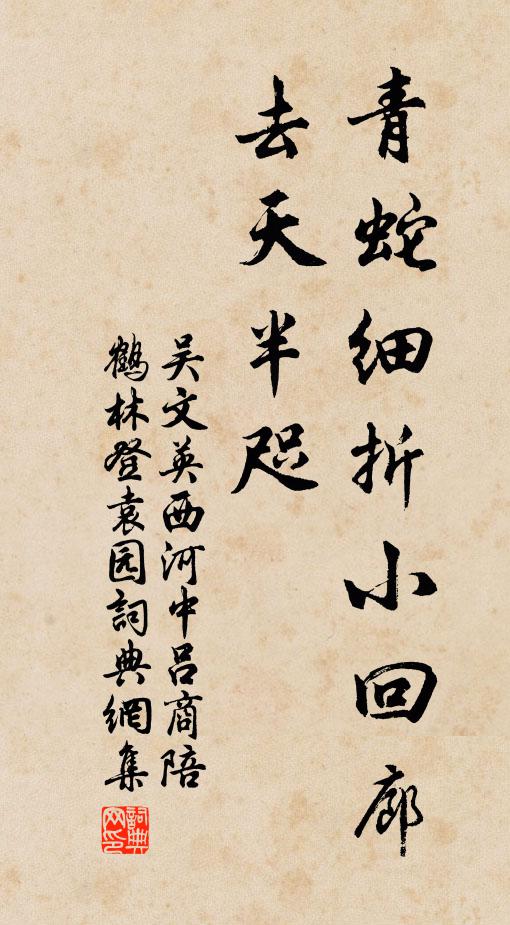 青蛇细折小回廊
去天半咫
吴文英西河中吕商陪
鹤林登袁园詞典網集
詞典网印